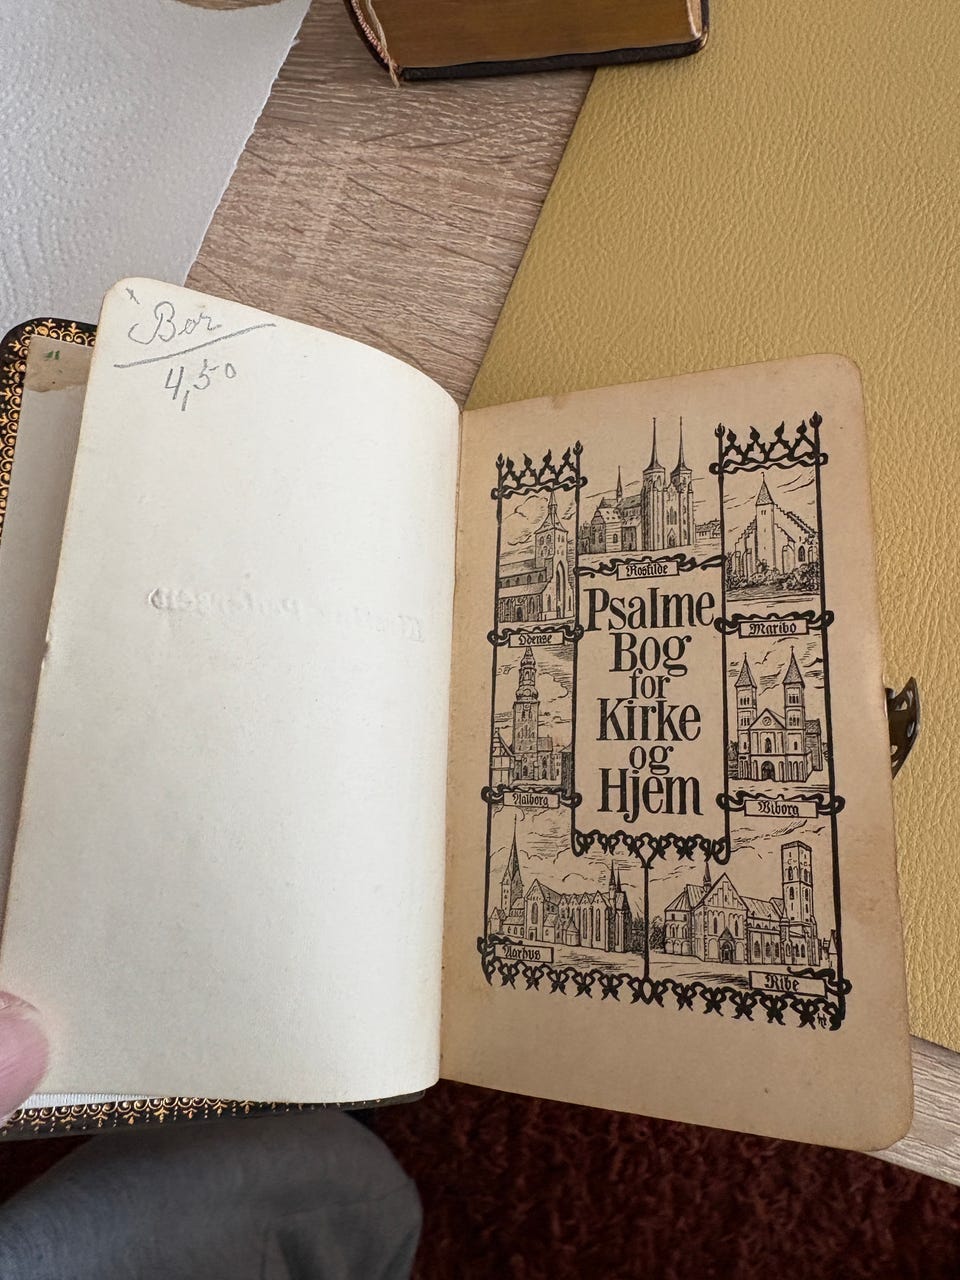 4,50
Roskilde
Psalme
Bog
for
Kirke
og
Hjem
Odense
Maribo
Aalborg
Wiborg
Aarhus
Ribe